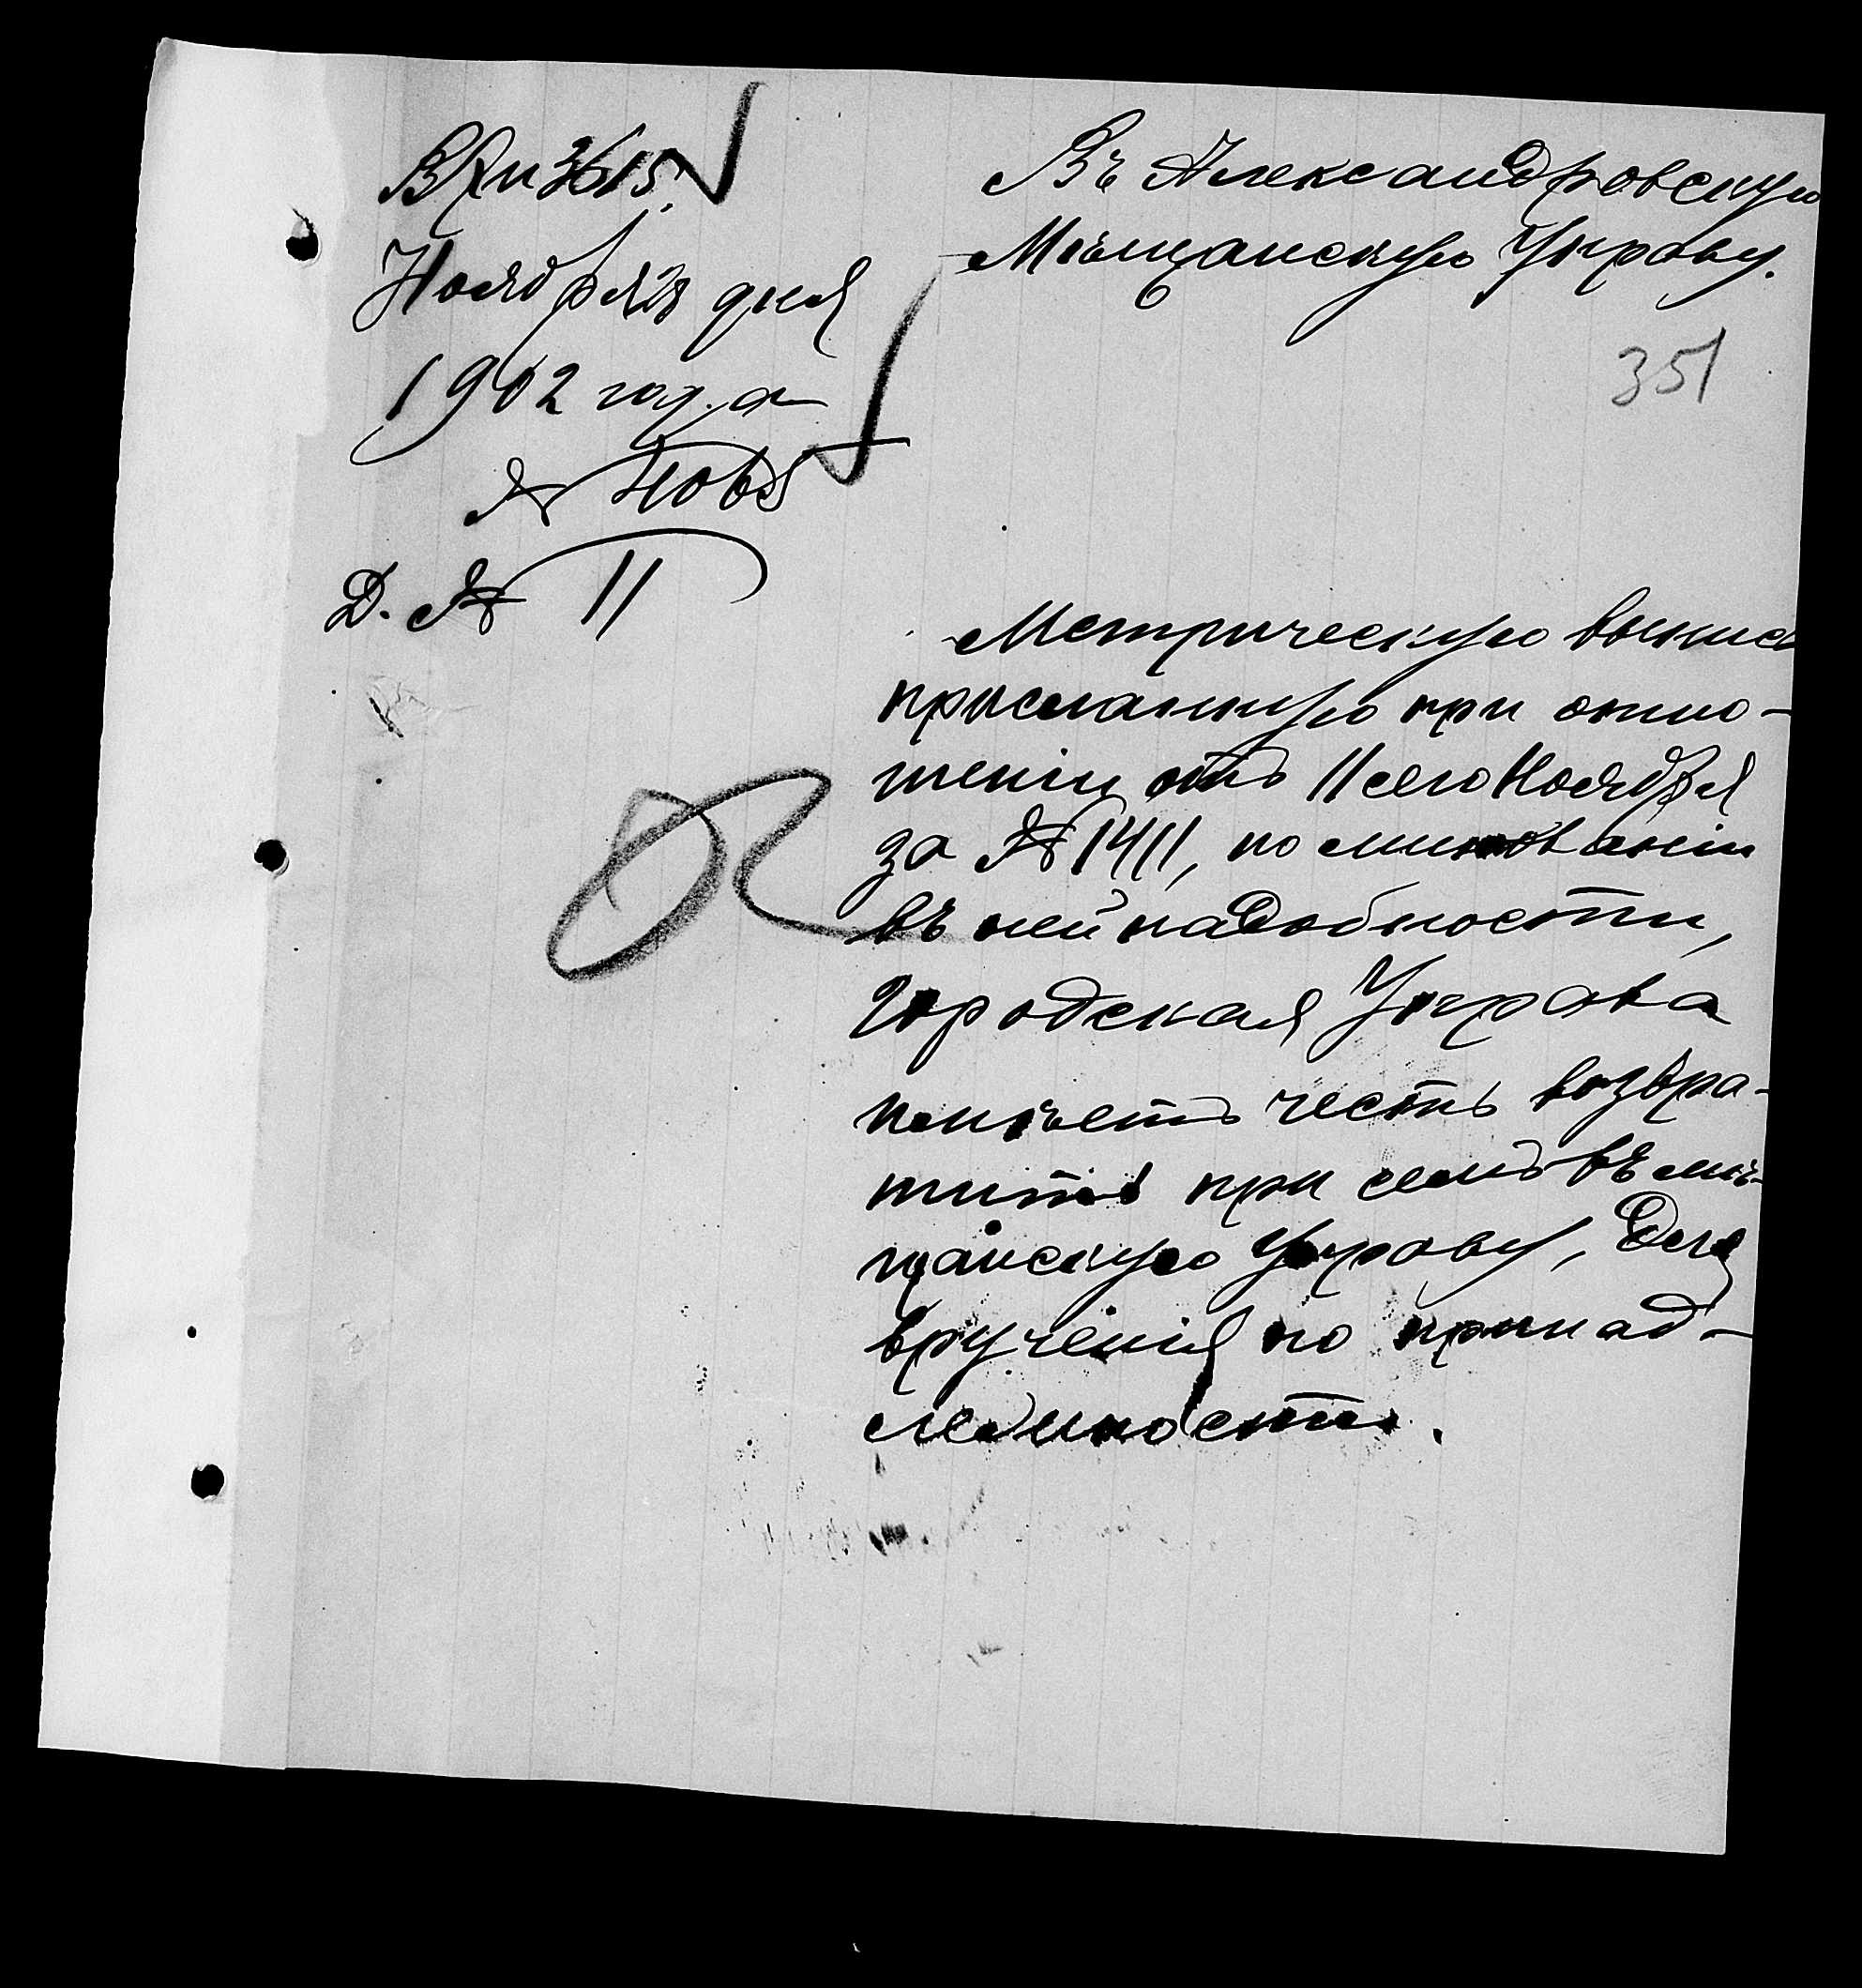 Вх. № 3615.
Ноября дня
1902 года
№
Д. № 11
Въ Александровскую
Мѣщанскую Управу.
351
Метрическую выпись
присланную при отно-
шеніи отъ 11 сего Ноября
за № 1411, по минованіи
въ ней надобности,
Городская Управа
имѣетъ честь возвра-
тить при семъ въ мѣ-
щанскую Управу, для
врученія по принад-
лежности.